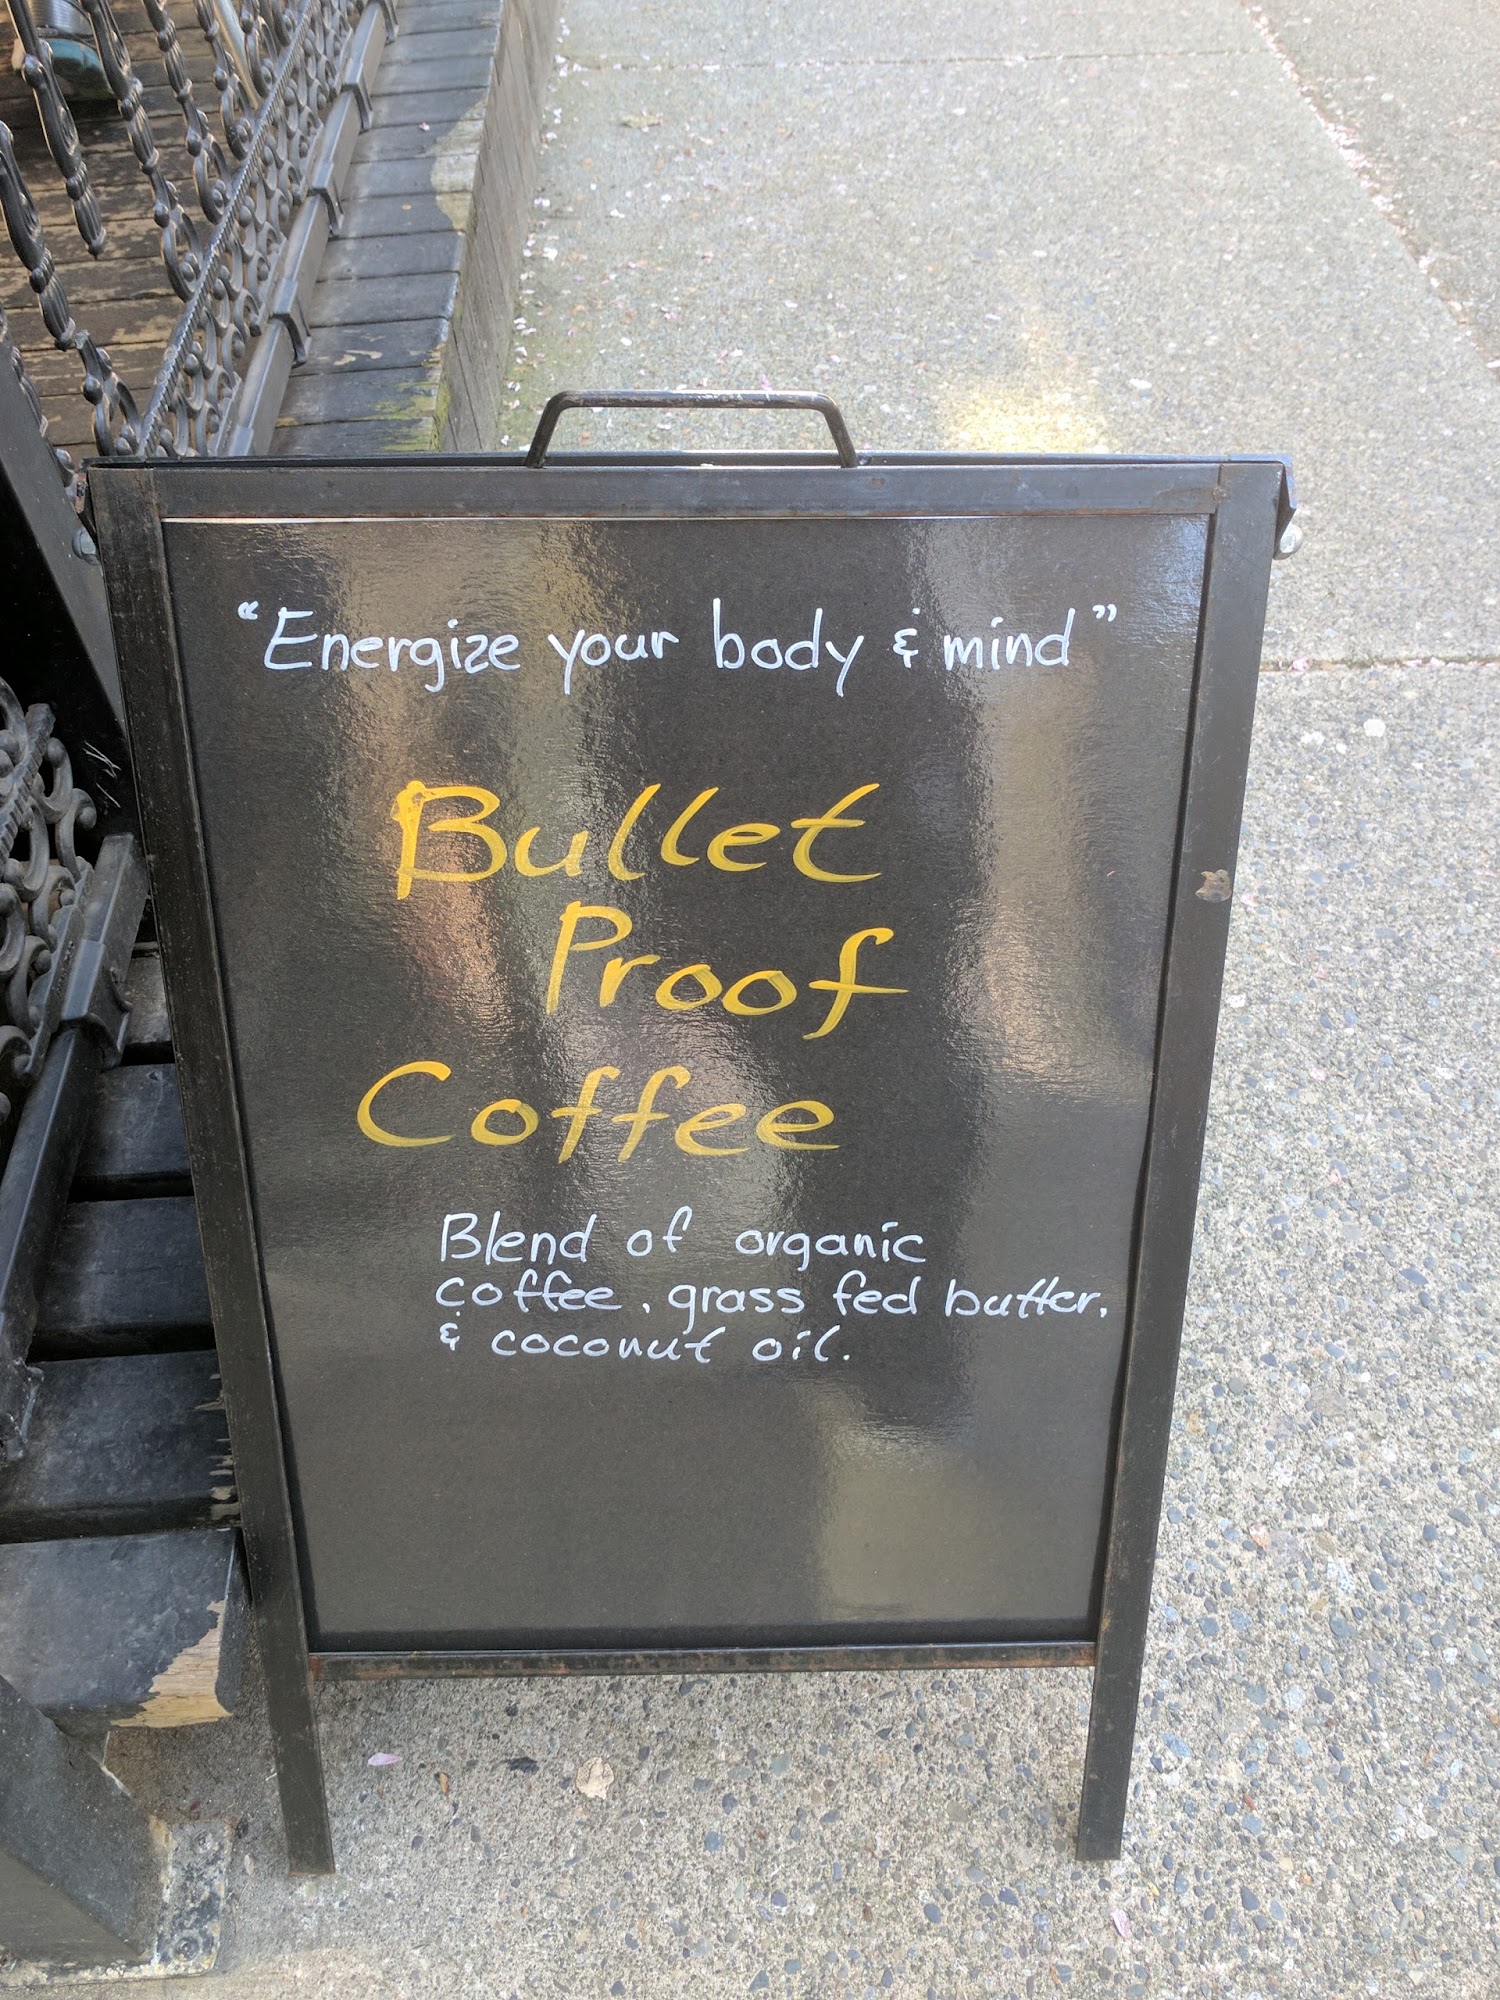 "Energize your body & mind"
Bullet
Proof
Coffee
Blend of organic
coffee, grass fed butter,
& coconut oil.